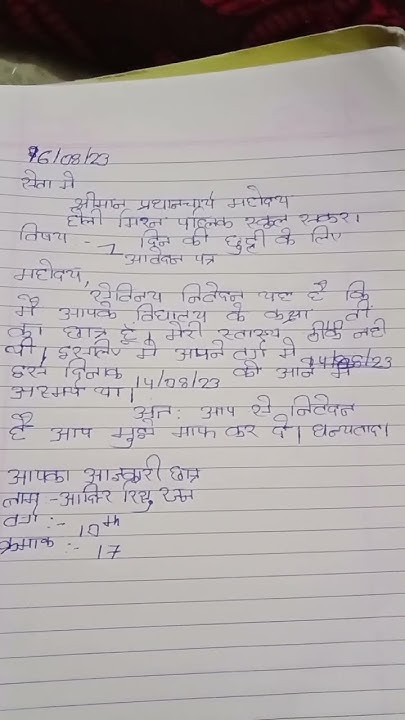 16/08/23
सेवा में
श्रीमान प्रधानचार्य महोदय
होली मिशन पब्लिक स्कूल सकरा
विषय :- 1 दिन की छुट्टी के लिए
आवेदन पत्र
महोदय,
सेविनय निवेदन यह है कि
मैं आपके विद्यालय के कक्षा
का छात्र हूँ, मेरी स्वास्थ्य ठीक नही
थी। इसलिए मैं अपने वर्ग में
इस दिनाक 14/08/23 को आने में
असमर्थ था।
अतः आप से निवेदन
है आप मुझे माफ कर दे। धन्यवाद।
आपका आज्ञाकारी छात्र
नाम - रिशु
वर्ग :- 10th
क्रमाक :- 17